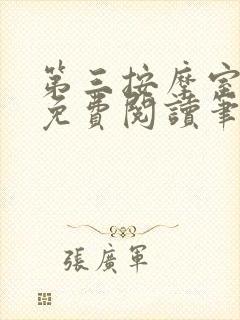 第三按摩室
免費閱讀筆
張廣軍